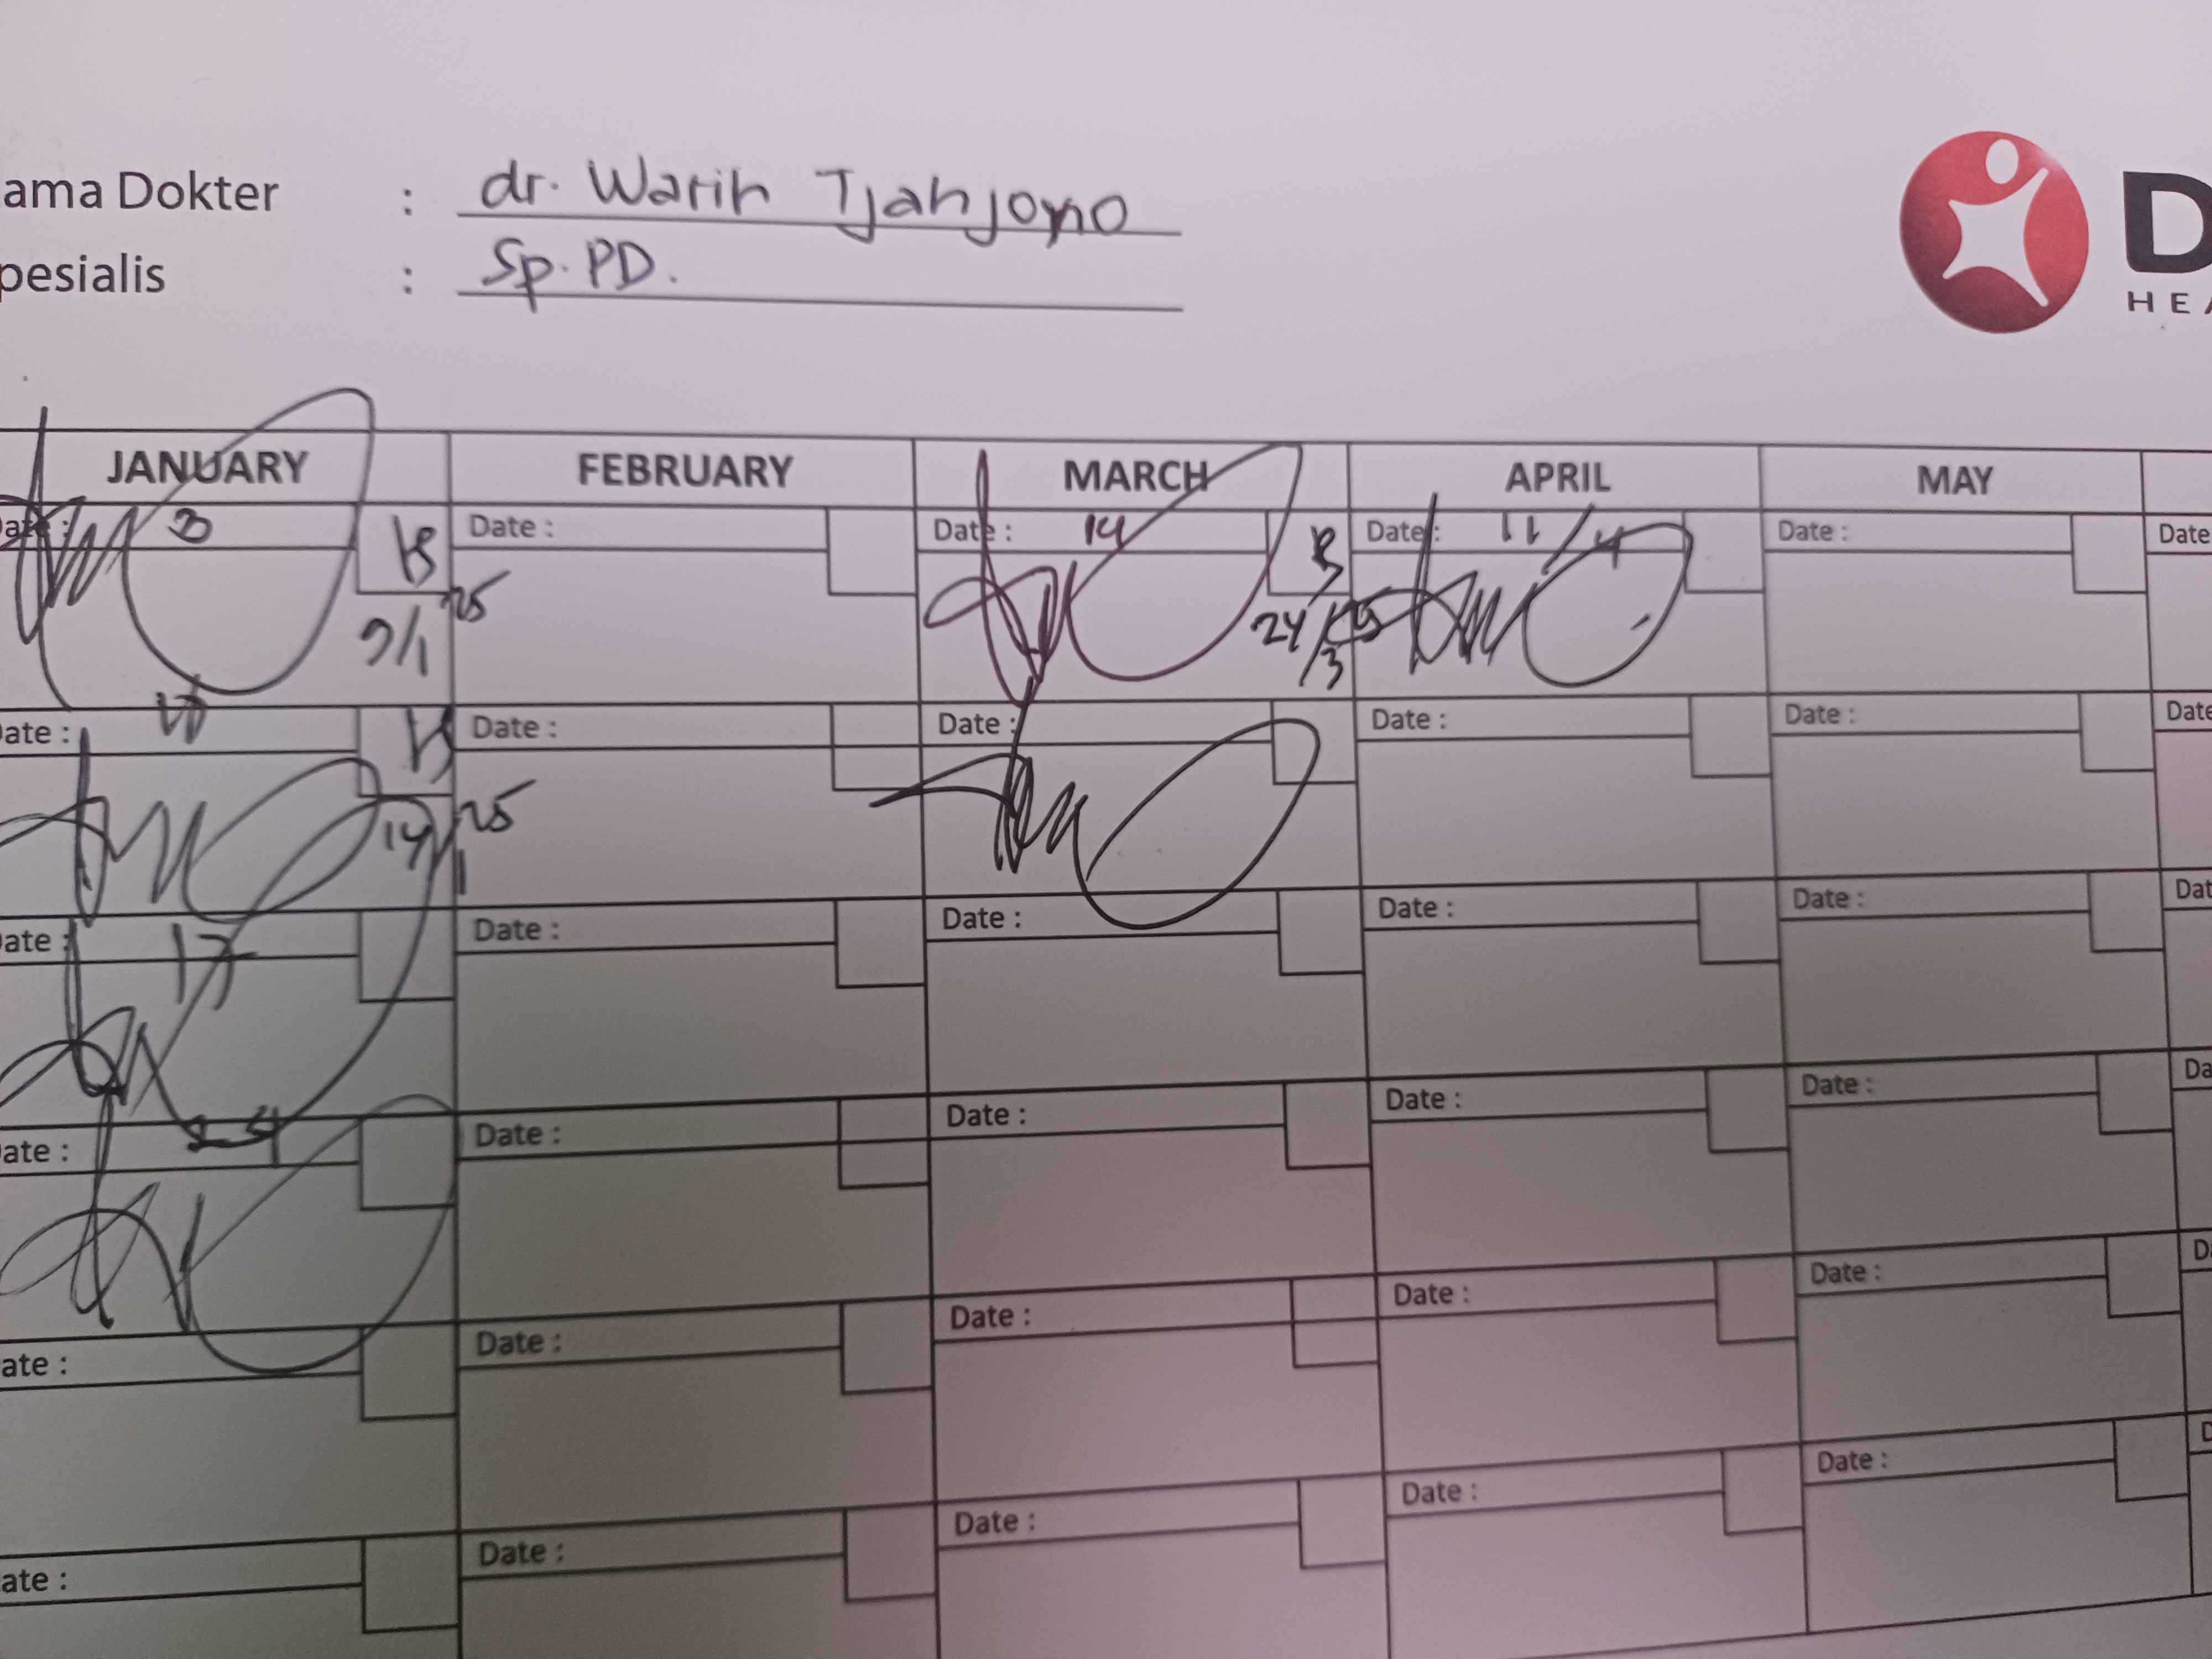 ama Dokter : dr. Warih Tjahjono
pesialis : Sp. PD.
D
HEA
JANUARY FEBRUARY MARCH APRIL MAY
Date : 3 Date : Date : 14 Date : 11/4 Date : Date
7/1 25 24/3 25
ate : Date : Date : Date : Date : Date
14/1 25
ate : 17 Date : Date : Date : Date : Dat
ate : 24 Date : Date : Date : Date : Da
ate : Date : Date : Date : Date : D
ate : Date : Date : Date : Date : D